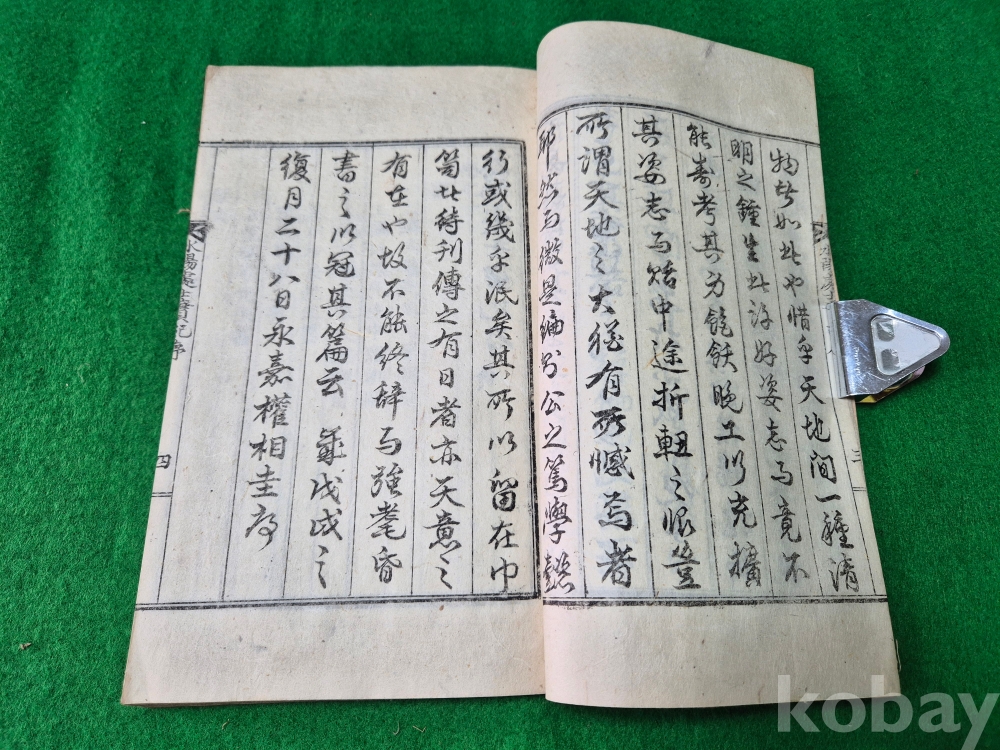 物皆如此也惜乎天地間一種清
明之鐘生此許好姿志而竟不
能壽考其力飽飫晚工以充擴
其姿志而焂中途折軔之恨豈
所謂天地之大猶有所憾焉者
耶然而微是編則公之篤學懿
行或幾乎泯矣其所以留在巾
笥比待刊傳之有日者亦天意之
有在也故不能終辭而強耄昏
書之以冠其篇云 歲戊戌之
復月二十八日永嘉權相圭序
四
三
kobay